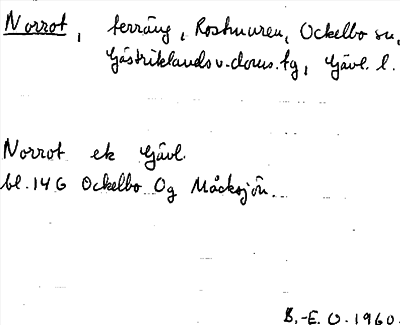 Norrot, terräng, Rosthmuren, Ockelbo sn,
Gästriklands v. doms. tg, Gävl. l.
Norrot ek Gävl.
bl. 14 G Ockelbo Og Måcksjön
B.-E. O. 1960.